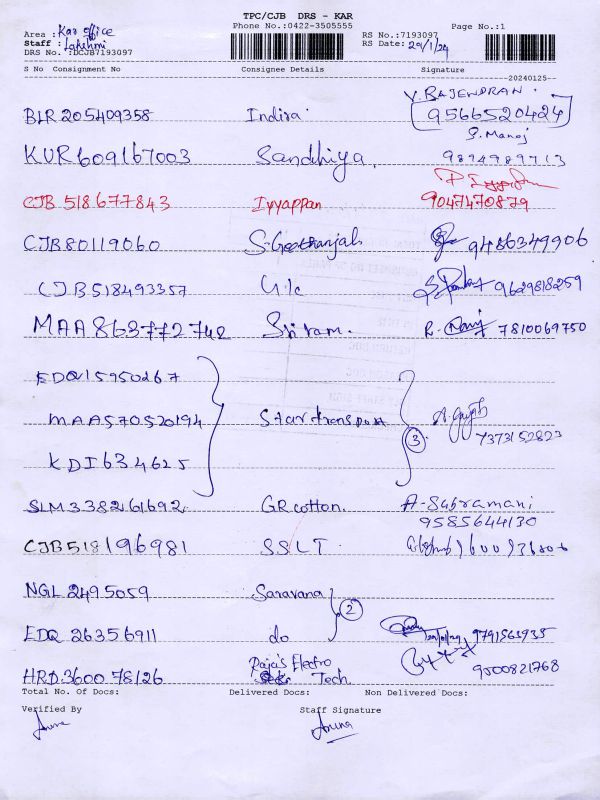 TPC/CJB DRS - KAR
Phone No.:0422-3505555 Page No.:1
Area : Kar office
Staff : Lakshmi RS No.:7193097
DRS No. :DCJB7193097 RS Date: 29/1/24
S No Consignment No Consignee Details Signature
20240125
V. RAJENDRAN.
BLR 205409358 Indira 9566520424
S. Manoj
KUR609167003 Sandhiya. 9894989713
CJB 518677843 Iyyappan 9047470879
CJB80119060 S. Geethanjali 9486349906
CJB518493357 U/c 9629818259
MAA863772742 Sri ram. R. 7810069750
EDQ15950267
MAA570520194 Star transport 3
7373152823
KDI634625
SLM338261692 GR cotton. A-Subramani
9585644130
CJB518196981 SSLT.
NGL 2495059 Saravana
2
EDQ 26356911 do 9791563935
HRD3600 78126 Raja's Electro Tech. 9500821768
Total No. Of Docs: Delivered Docs: Non Delivered Docs:
Verified By Staff Signature
Aruna Aruna